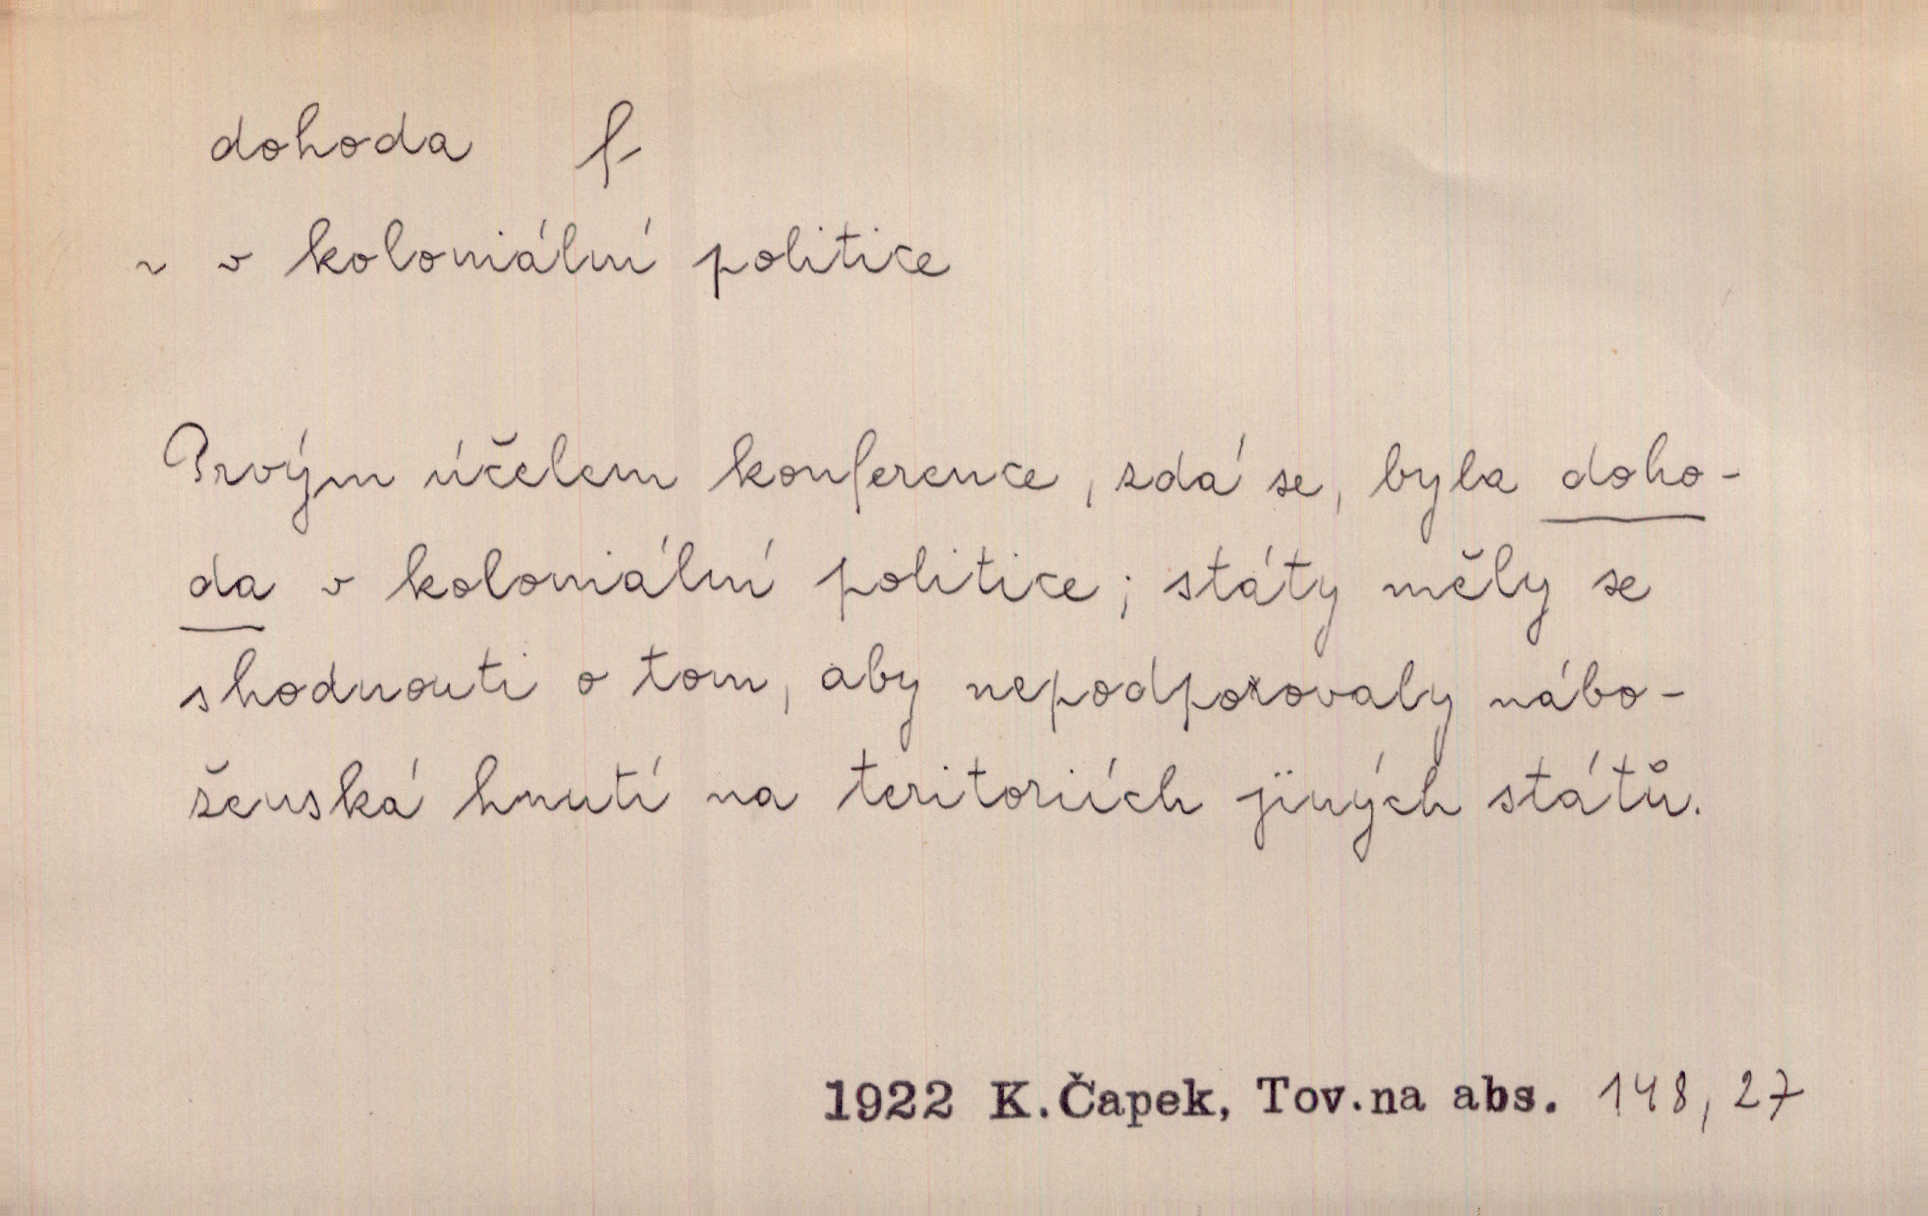 dohoda f.
~ v koloniální politice
Prvým účelem konference, zdá se, byla doho-
da v koloniální politice; státy měly se
shodnouti o tom, aby nepodporovaly nábo-
ženská hnutí na teritoriích jiných států.
1922 K.Čapek, Tov.na abs. 148, 27